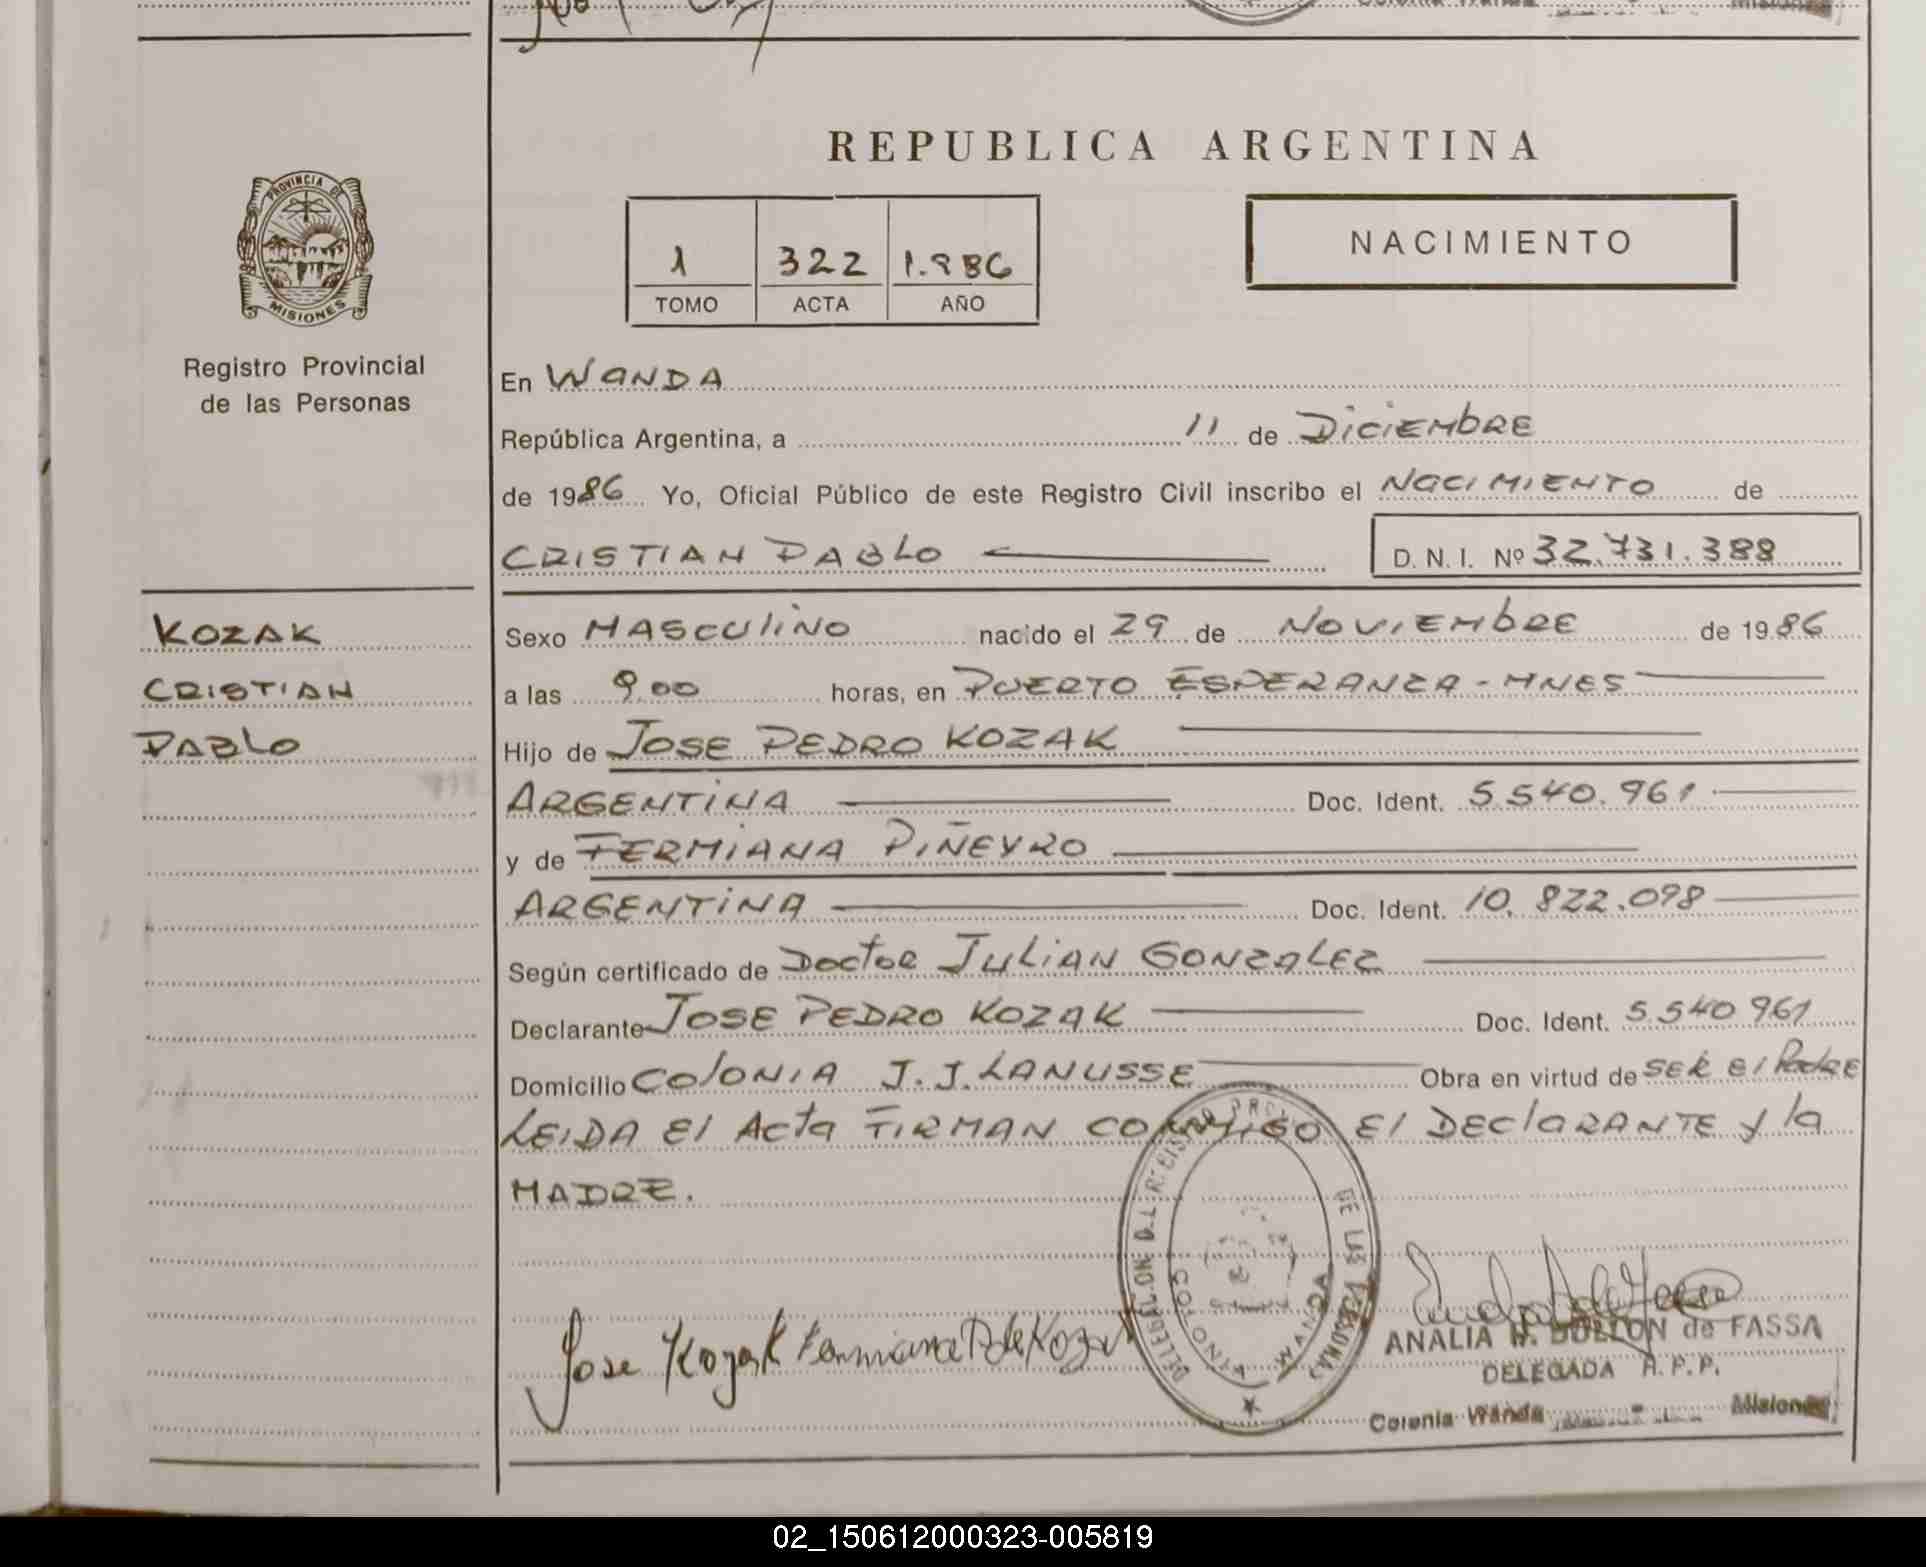 REPUBLICA ARGENTINA
PROVINCIA DE
MISIONES
Registro Provincial
de las Personas
NACIMIENTO
1 322 1.986
TOMO ACTA AÑO
En WANDA
República Argentina, a 11 de DiciEMbRE
de 1986 Yo, Oficial Público de este Registro Civil inscribo el NaciMIENTO de
CRISTIAN PABLO D. N. I. Nº 32.731.388
KOZAK
CRISTIAN
PABLO
Sexo MASCULiNO nacido el 29 de NOVIEMbRE de 1986
a las 9,00 horas, en PUERTO ESPERANZA - MNES
Hijo de JOSE PEDRO KOZAK
ARGENTiNA Doc. Ident. 5.540.961
y de FERMiANA PIÑEYRO
ARGENTiNA Doc. Ident. 10.822.098
Según certificado de Doctor JULIAN GONZALEZ
Declarante JOSE PEDRO KOZAK Doc. Ident. 5.540 961
Domicilio COLONIA J.J. LANUSSE Obra en virtud de SER El PadRE
LEIDA El Acta FIRMAN CONMIGO El DEClaRANTE y la
MADRE.
DELEGACION DEL REGISTRO PROV. DE LAS PERSONAS
COLONIA WANDA
Jose Kozak Fermiana P de Kozak
ANALIA N. BULLON de FASSA
DELEGADA R.P.P.
Colonia Wanda Misiones
02_150612000323-005819